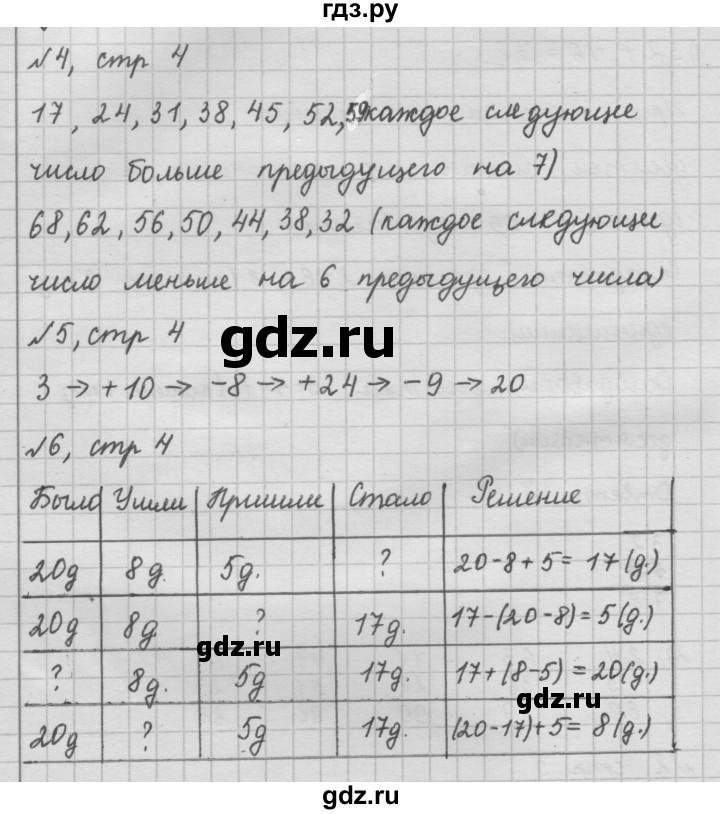 гдз.ру
№4, стр 4
17, 24, 31, 38, 45, 52, 59 каждое следующее
число больше предыдущего на 7)
68, 62, 56, 50, 44, 38, 32 (каждое следующее
число меньше на 6 предыдущего числа)
№5, стр 4
gdz.ru
3 → +10 → -8 → +24 → -9 → 20
№6, стр 4
Было Ушли Пришли Стало Решение
20д 8д. 5д. ? 20-8+5= 17(д.)
20д 8д. ? 17д. 17-(20-8)=5(д.)
gdz.ru
? 8д. 5д 17д. 17+(8-5)=20(д.)
gdz.ru
20д ? 5д 17д. (20-17)+5= 8(д.)
gdz.ru